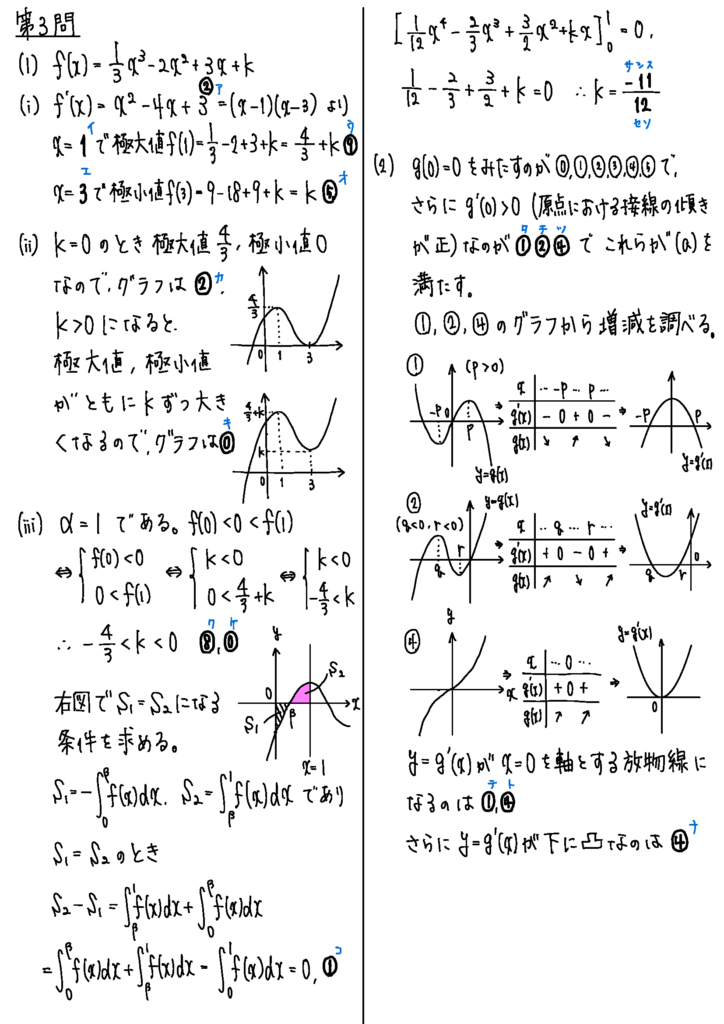 第3問
(1) f(x)=1/3 x³-2x²+3x+k
② ア
(i) f'(x)=x²-4x+3=(x-1)(x-3) より
イ ウ
x=1で極大値f(1)=1/3-2+3+k=4/3+k ⑨
エ オ
x=3で極小値f(3)=9-18+9+k=k ⑤
(ii) k=0のとき 極大値4/3, 極小値0
なので,グラフは② カ
k>0になると,
極大値,極小値
がともにkずつ大き
くなるので,グラフは⓪ キ
4/3 0 1 3
4/3+k k 0 1 3
(iii) α=1である。f(0)<0<f(1)
⇔{f(0)<0 0<f(1) ⇔{k<0 0<4/3+k ⇔{k<0 -4/3<k
∴ -4/3<k<0 ⑧,⓪ ク ケ
y S₂ 0 β x S₁ x=1
右図でS₁=S₂になる
条件を求める。
S₁=-∫₀^β f(x)dx. S₂=∫_β^1 f(x)dx であり
S₁=S₂のとき
S₂-S₁=∫_β^1 f(x)dx+∫₀^β f(x)dx
=∫₀^β f(x)dx+∫_β^1 f(x)dx=∫₀^1 f(x)dx=0, ① コ
[1/12 x⁴-2/3 x³+3/2 x²+kx]₀^1=0,
サシス
1/12-2/3+3/2+k=0 ∴k=-11/12
セソ
(2) g(0)=0をみたすのが⓪,①,②,③,④,⑤で,
さらにg'(0)>0 (原点における接線の傾き
タ チ ツ
が正)なのが①②④で これらが(a)を
満たす。
①,②,④のグラフから増減を調べる。
① (p>0)
-p 0 p y=g(x)
x … -p … p …
g'(x) - 0 + 0 -
g(x) ↘ ↗ ↘
-p p y=g'(x)
② (q<0, r<0) y=g(x)
q r
x … q … r …
g'(x) + 0 - 0 +
g(x) ↗ ↘ ↗
y=g'(x) q r 0
④ y x
x … 0 …
g'(x) + 0 +
g(x) ↗ ↗
y=g'(x) 0
y=g'(x)がx=0を軸とする放物線に
テ ト
なるのは①,④
さらにy=g'(x)が下に凸なのは④ ナ